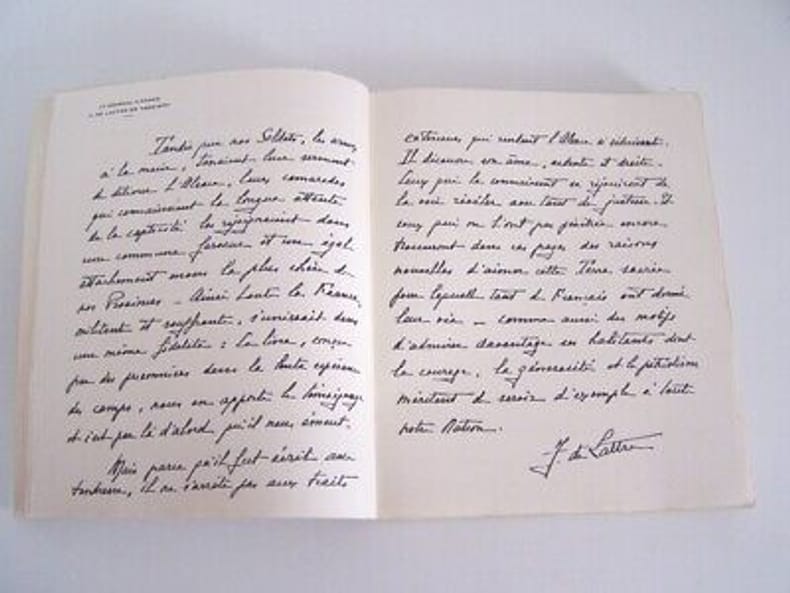 LE GÉNÉRAL D'ARMÉE
J. DE LATTRE DE TASSIGNY
Tandis que nos Soldats, les armes
à la main, tenaient leur serment
de délivrer l'Alsace, leurs camarades
qui connaissaient la longue attente
de la captivité les rejoignaient dans
une commune ferveur et un égal
attachement envers la plus chère de
nos Provinces – Ainsi toute la France,
militante et souffrante, s'unissait dans
une même fidélité : le livre, conçu
par des prisonniers dans la lente espérance
des camps, nous en apporte le témoignage
et c'est par là d'abord qu'il nous émeut.
Mais parce qu'il fut écrit avec
tendresse, il ne s'arrête pas aux traits
extérieurs qui rendent l'Alsace si séduisante.
Il découvre son âme, ardente et droite.
Ceux qui la connaissent se réjouiront de
la voir révéler avec tant de justesse. Et
ceux qui ne l'ont pas pénétrée encore
trouveront dans ces pages des raisons
nouvelles d'aimer cette Terre sacrée
pour laquelle tant de Français ont donné
leur vie – comme aussi des motifs
d'admirer davantage ses habitants dont
le courage, la générosité et le patriotisme
méritent de servir d'exemple à toute
notre Nation.
J. de Lattre